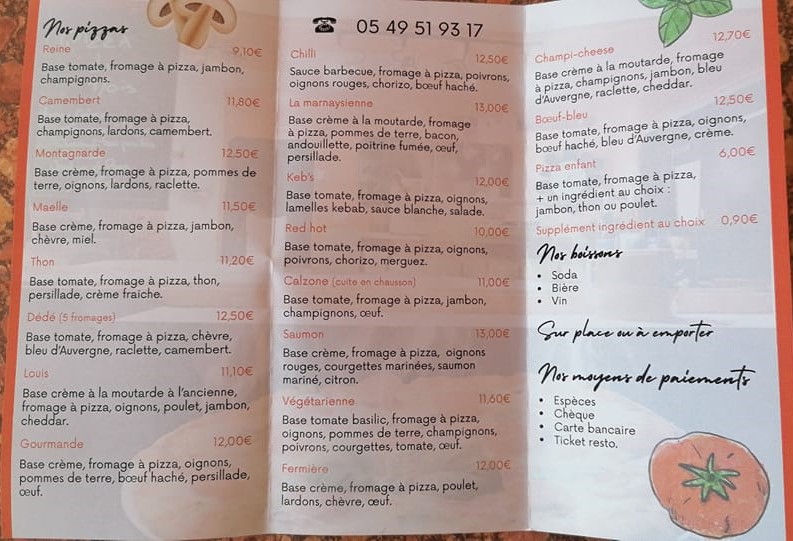 Nos pizzas
Reine 9,10€
Base tomate, fromage à pizza, jambon,
champignons.
Camembert 11,80€
Base tomate, fromage à pizza,
champignons, lardons, camembert.
Montagnarde 12,50€
Base crème, fromage à pizza, pommes de
terre, oignons, lardons, raclette.
Maelle 11,50€
Base crème, fromage à pizza, jambon,
chèvre, miel.
Thon 11,20€
Base tomate, fromage à pizza, thon,
persillade, crème fraiche.
Dédé (5 fromages) 12,50€
Base tomate, fromage à pizza, chèvre,
bleu d'Auvergne, raclette, camembert.
Louis 11,10€
Base crème à la moutarde à l'ancienne,
fromage à pizza, oignons, poulet, jambon,
cheddar.
Gourmande 12,00€
Base crème, fromage à pizza, oignons,
pommes de terre, bœuf haché, persillade,
œuf.
05 49 51 93 17
Chilli 12,50€
Sauce barbecue, fromage à pizza, poivrons,
oignons rouges, chorizo, bœuf haché.
La marnaysienne 13,00€
Base crème à la moutarde, fromage
à pizza, pommes de terre, bacon,
andouillette, poitrine fumée, œuf,
persillade.
Keb's 12,00€
Base tomate, fromage à pizza, oignons,
lamelles kebab, sauce blanche, salade.
Red hot 10,00€
Base tomate, fromage à pizza, oignons,
poivrons, chorizo, merguez.
Calzone (cuite en chausson) 11,00€
Base tomate, fromage à pizza, jambon,
champignons, œuf.
Saumon 13,00€
Base crème, fromage à pizza, oignons
rouges, courgettes marinées, saumon
mariné, citron.
Végétarienne 11,60€
Base tomate basilic, fromage à pizza,
oignons, pommes de terre, champignons,
poivrons, courgettes, tomate, œuf.
Fermière 12,00€
Base crème, fromage à pizza, poulet,
lardons, chèvre, œuf.
Champi-cheese 12,70€
Base crème à la moutarde, fromage
à pizza, champignons, jambon, bleu
d'Auvergne, raclette, cheddar.
Bœuf-bleu 12,50€
Base tomate, fromage à pizza, oignons,
bœuf haché, bleu d'Auvergne, crème.
Pizza enfant 6,00€
Base tomate, fromage à pizza,
+ un ingrédient au choix :
jambon, thon ou poulet.
Supplément ingrédient au choix 0,90€
Nos boissons
• Soda
• Bière
• Vin
Sur place ou à emporter
Nos moyens de paiements
• Espèces
• Chèque
• Carte bancaire
• Ticket resto.